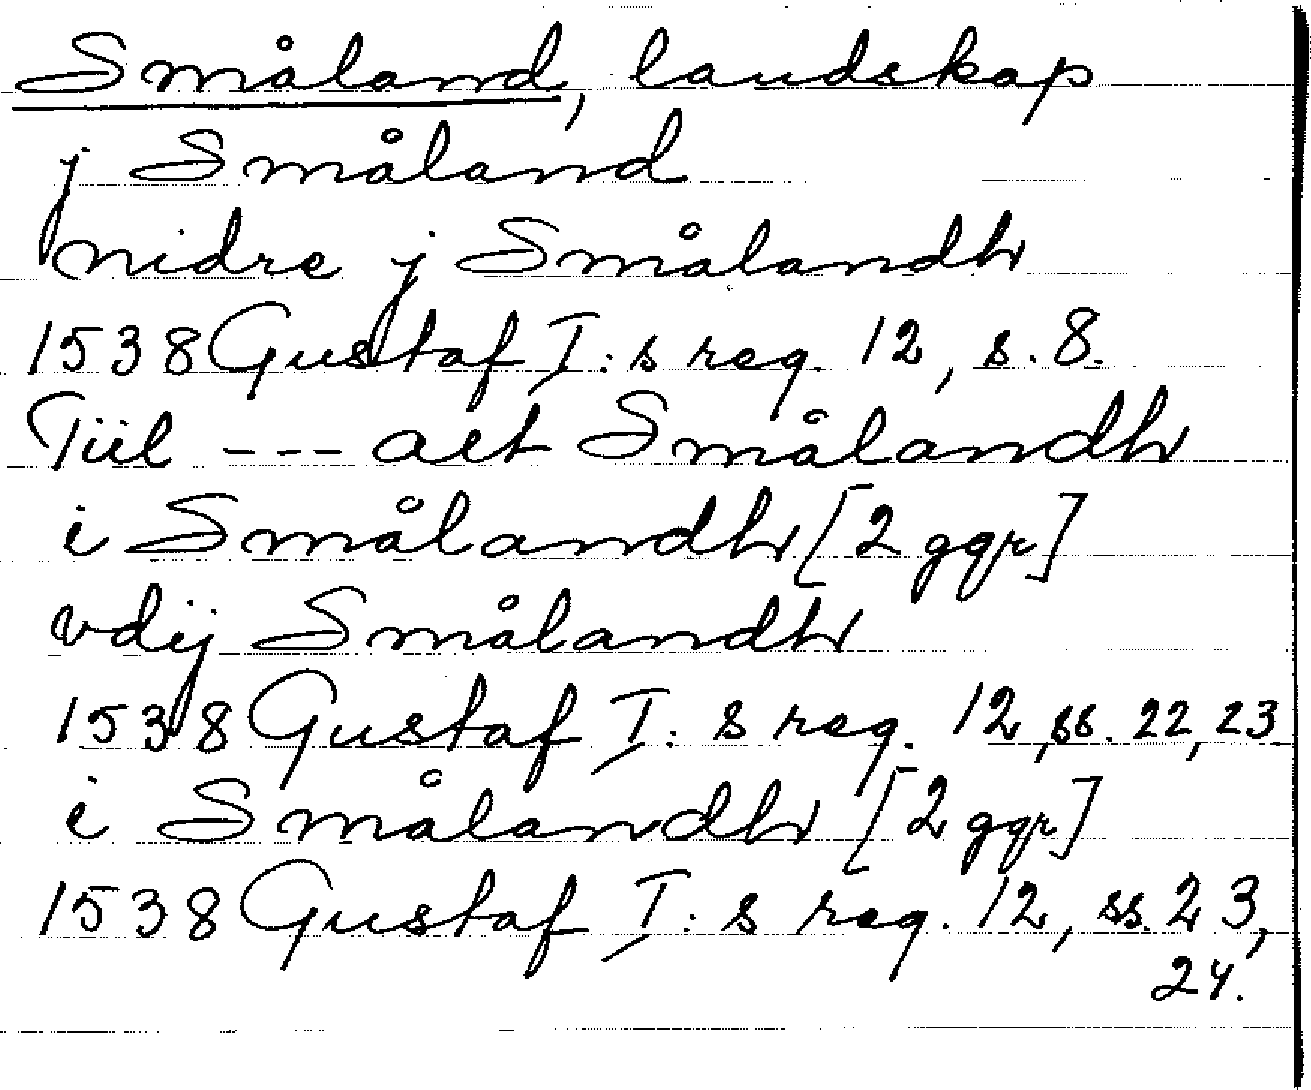 Småland, landskap
j Småland
nidre j Smålandh
1538 Gustaf I:s reg. 12, s. 8.
Tiil --- alt Smålandh
i Smålandh [2 ggr]
vdij Smålandh
1538 Gustaf I:s reg. 12, ss. 22, 23
i Smålandh [2 ggr]
1538 Gustaf I:s reg. 12, ss. 23,
24.